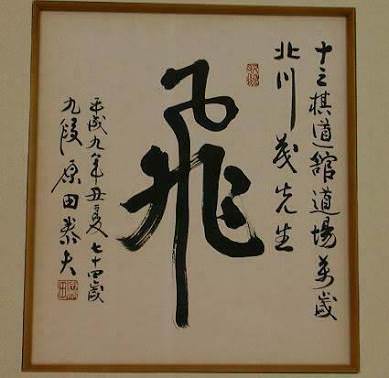 十三棋道舘道場萬歳
北川茂先生
飛
平成九年丑夏 七十四歳
九段 原田泰夫